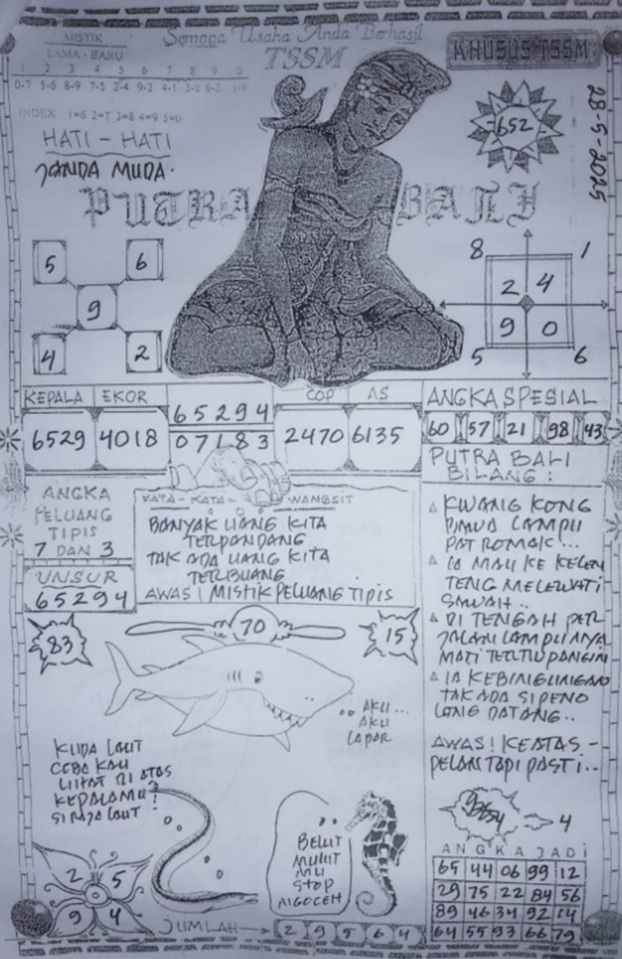 MISTIK
LAMA - BARU
Semoga Usaha Anda Berhasil
TSSM
KHUSUS TSSM
1 2 3 4 5 6 7 8 9 0
0-7 5-6 8-9 7-5 2-4 9-2
INDEX 1=6 2=7 3=8 4=9 5=0
HATI - HATI
JANDA MUDA.
652
28-5-2025
PUTRA BALI
5 6
9
4 2
8 1
2 4
9 0
5 6
KEPALA EKOR
6529 4018
65294
07183
COP AS
2470 6135
ANGKA SPESIAL
60 57 21 98 43
ANGKA
PELUANG
TIPIS
7 DAN 3
UNSUR
65294
KATA - KATA - WANGSIT
BANYAK UANG KITA
TERPANDANG
TAK ADA UANG KITA
TERBUANG
AWAS! MISTIK PELUANG TIPIS
PUTRA BALI
BILANG :
KWANG KONG
BAWA LAMPU
PATROMAK...
IA MAU KE KELEN
TENG MELEWATI
SAWAH..
DI TENGAH PER
JALAN LAMPUNYA
MATI TERTIUP ANGIN
IA KEBINGUNGAN
TAK ADA
DATANG..
AWAS! KEATAS -
PELAN TAPI PASTI..
83
70
15
.. AKU...
AKU
LAPAR
KUDA LAUT
COBA KAU
LIHAT DI ATAS
KEPALAMU?
SI RAJA LAUT
..
BELUT
MULUT
MU
STOP
NGOCEH
2 5
9 4
JUMLAH
2 9 5 6 4
4
ANGKA JADI
65 44 06 99 12
29 75 22 84 56
89 46 34 92 14
64 55 93 66 79